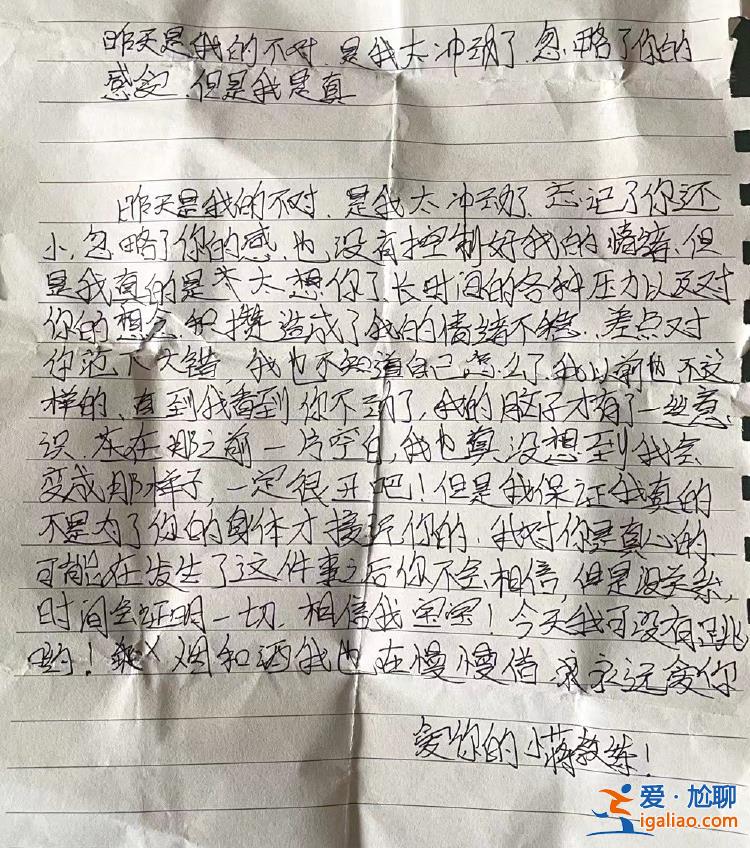 昨天是我的不对、是我太冲动了、忽略了你的
感受、但是我是真
昨天是我的不对、是我太冲动了、忘记了你还
小、忽略了你的感、也没有控制好我的情绪、但
是我真的是太想你了、长时间的各种压力以及对
你的想念积攒造成了我的情绪不稳、差点对
你犯下大错，我也不知道自己怎么了、我以前也不这
样的、直到我看到你不动了，我的脑子才有了一丝意
识、在那之前一片空白、我也真没想到我会
变成那样子，一定很吧！但是我保证我真的
不是为了你的身体才接近你的、我对你是真心的、
可能在发生了这件事之后你不会相信，但是没关系，
时间会证明一切、相信我宝宝！今天我可没有跳
哟！烟和酒我也在慢慢借 永远爱你
爱你的小蒋教练！
爱·尬聊
igaliao.com